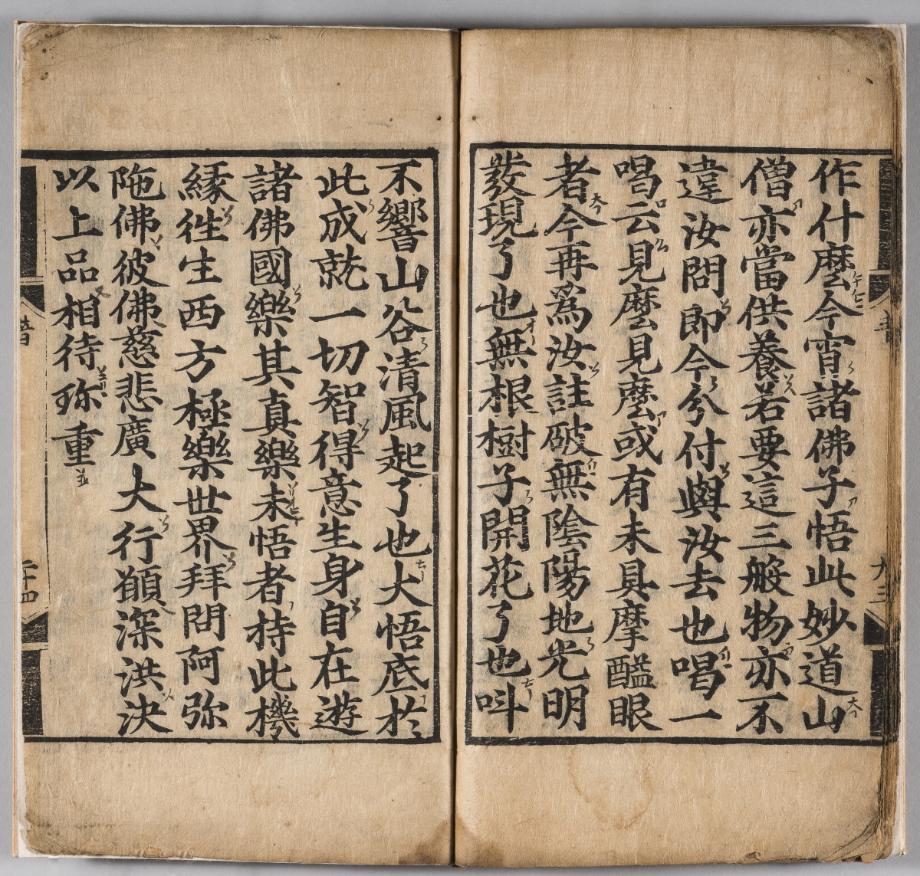 作什麽今宵諸佛子悟此妙道山
僧亦當供養若要這三般物亦不
違汝問即今分付與汝去也喝一
喝云見麽見麽或有未具摩醯眼
者今再爲汝註破無陰陽地光明
發現了也無根樹子開花了也呌
不響山谷清風起了也大悟底於
此成就一切智得意生身自在遊
諸佛國樂其真樂未悟者持此機
緣徃生西方極樂世界拜問阿弥
陁佛彼佛慈悲廣大行願深洪决
以上品相待弥重
普
二十四